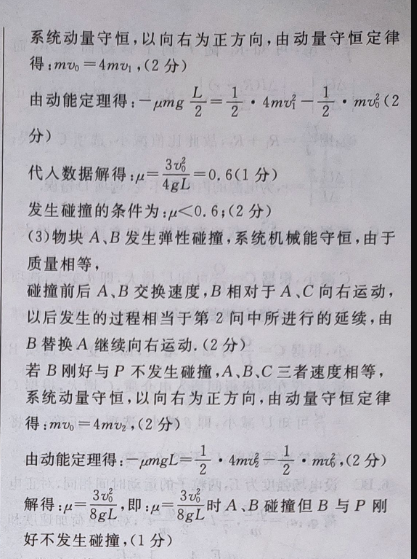 系统动量守恒,以向右为正方向,由动量守恒定律
得:mv₀=4mv₁,(2 分)
由动能定理得:-μmg L/2=1/2·4mv₁²-1/2·mv₀²(2
分)
代人数据解得:μ=3v₀²/4gL=0.6(1 分)
发生碰撞的条件为:μ<0.6;(2 分)
(3)物块 A、B 发生弹性碰撞,系统机械能守恒,由于
质量相等,
碰撞前后 A、B 交换速度,B 相对于 A、C 向右运动,
以后发生的过程相当于第 2 问中所进行的延续,由
B 替换 A 继续向右运动.(2 分)
若 B 刚好与 P 不发生碰撞,A、B、C 三者速度相等,
系统动量守恒,以向右为正方向,由动量守恒定律
得:mv₀=4mv₂,(2 分)
由动能定理得:-μmgL=1/2·4mv₂²-1/2·mv₀²,(2 分)
解得:μ=3v₀²/8gL,即:μ=3v₀²/8gL时 A、B 碰撞但 B 与 P 刚
好不发生碰撞,(1 分)